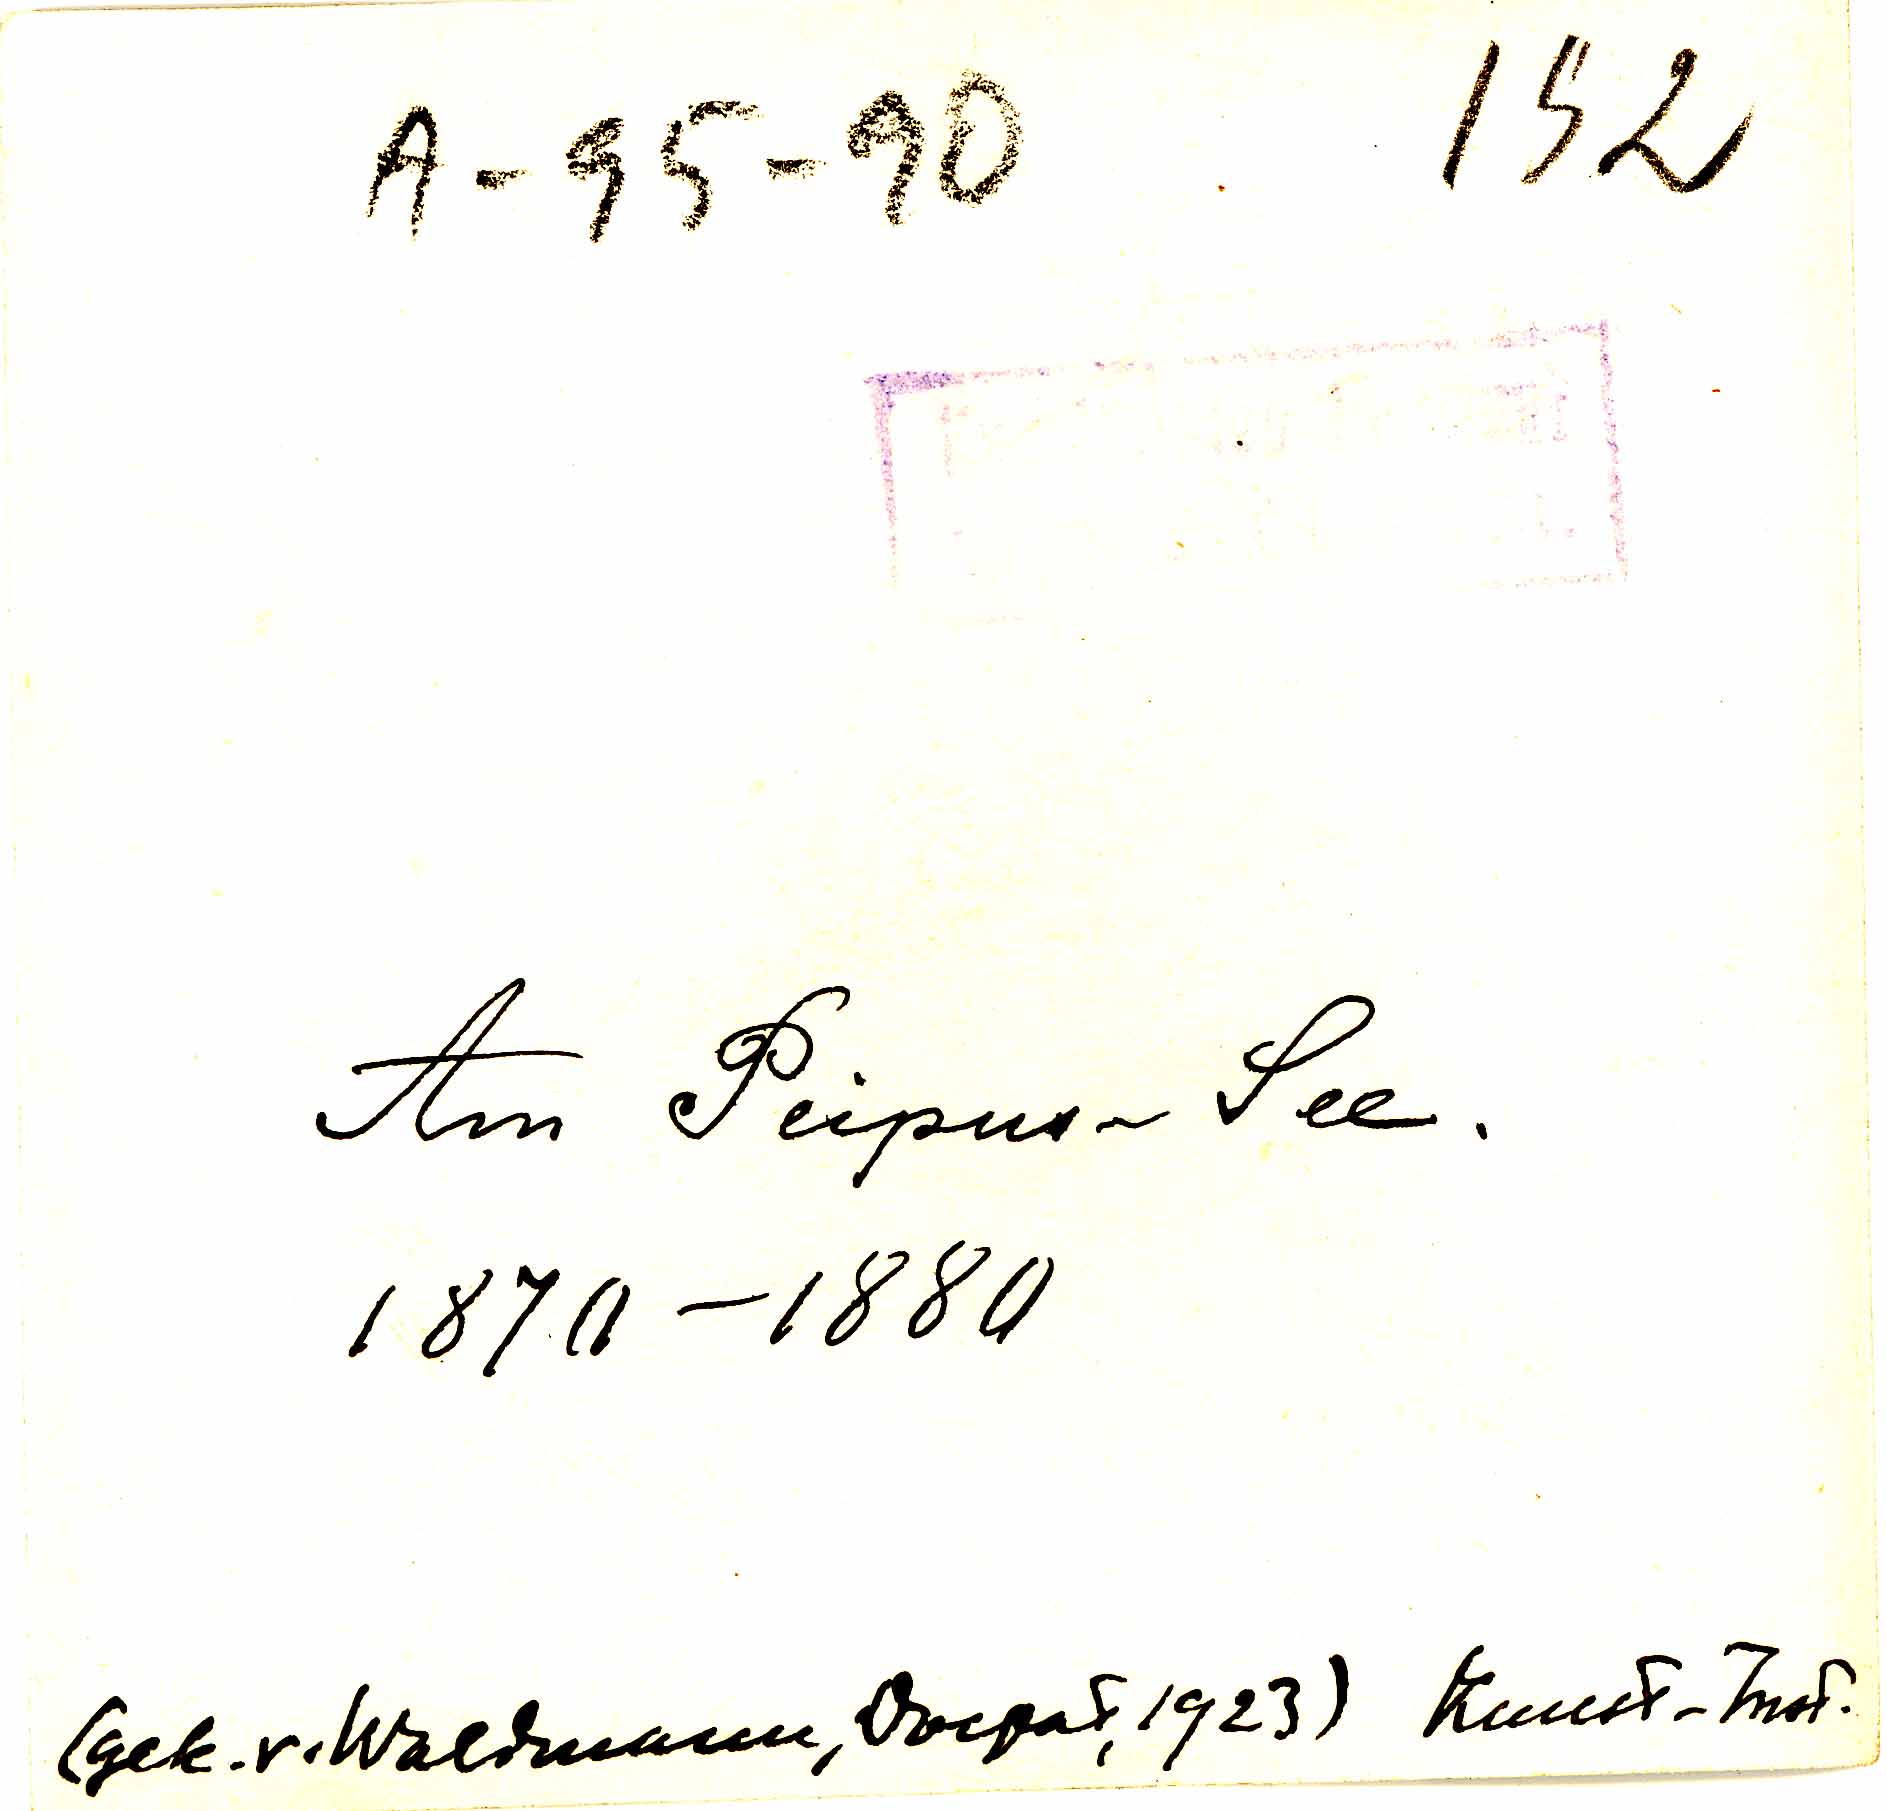 A-95-90 152
Am Peipus-See.
1870-1880
(gek. v. Waldmann, Dorpat, 1923) Kunst-Inst.